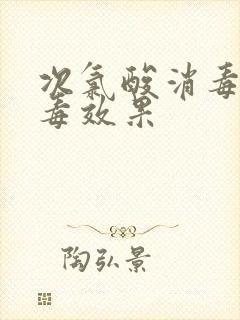 次氯酸消毒
毒效果
陶弘景